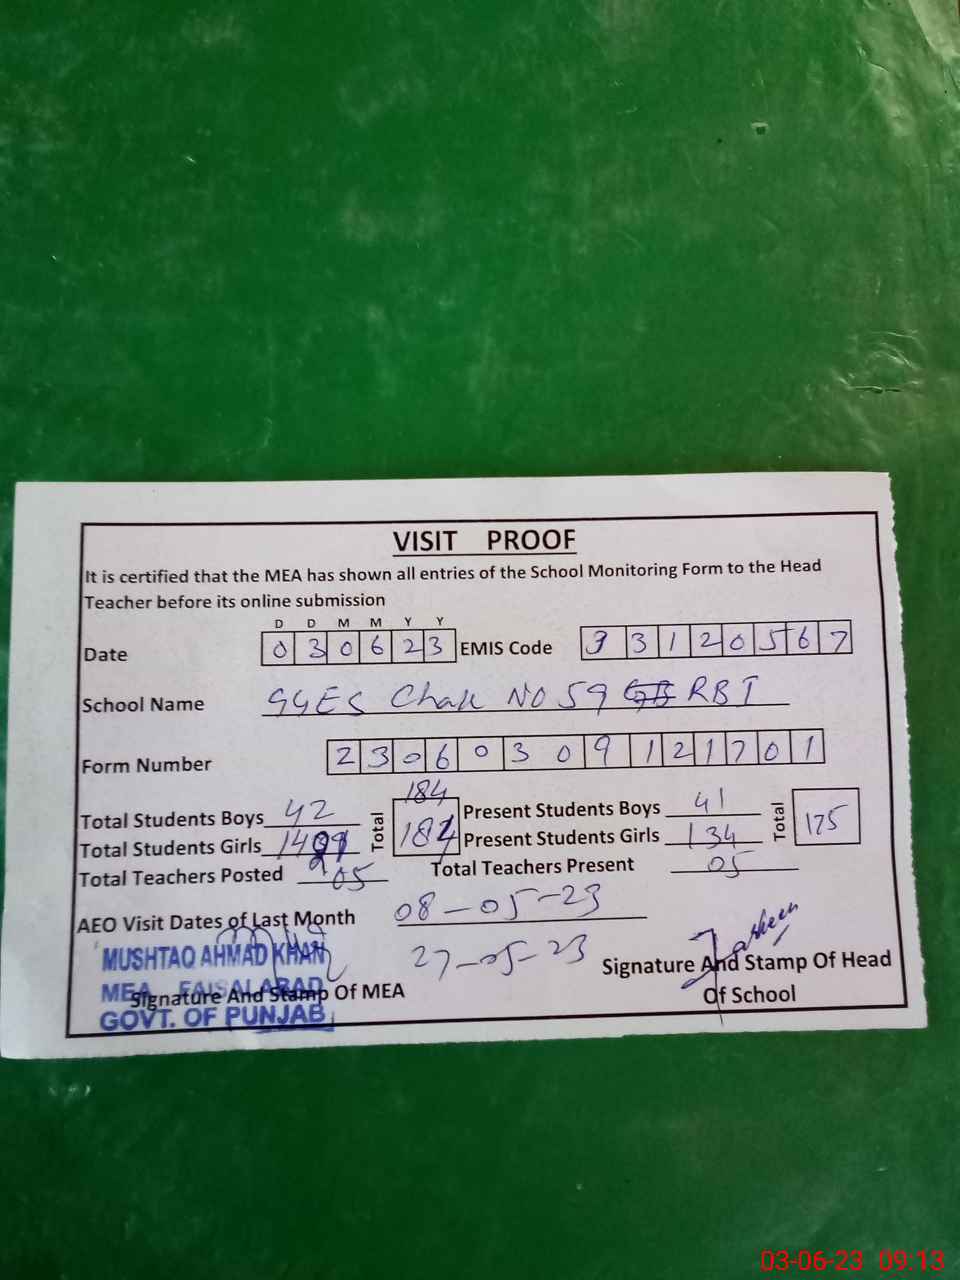 VISIT PROOF
It is certified that the MEA has shown all entries of the School Monitoring Form to the Head
Teacher before its online submission
D D M M Y Y
Date 0 3 0 6 2 3 EMIS Code 3 3 1 2 0 5 6 7
School Name GGES Chak NO 59 RB I
Form Number 2 3 0 6 0 3 0 9 1 2 1 7 0 1
184
Total Students Boys 42 Total Present Students Boys 41 Total 175
Total Students Girls Present Students Girls 134
Total Teachers Posted 05 Total Teachers Present 05
AEO Visit Dates of Last Month 08-05-23
27-05-23
MUSHTAQ AHMAD KHAN
MEA FAISALABAD
GOVT. OF PUNJAB
Signature And Stamp Of MEA
Signature And Stamp Of Head
Of School
03-06-23 09:13